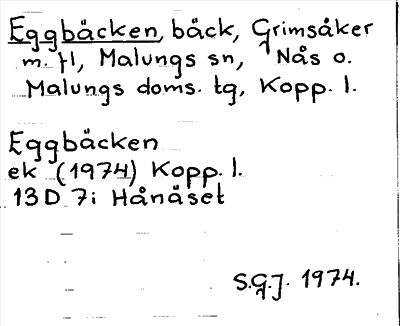 Eggbäcken, bäck, Grimsåker
m. fl, Malungs sn, Nås o.
Malungs doms. tg, Kopp. l.
Eggbäcken
ek (1974) Kopp. l.
13 D 7i Hånåset
S.G.J. 1974.